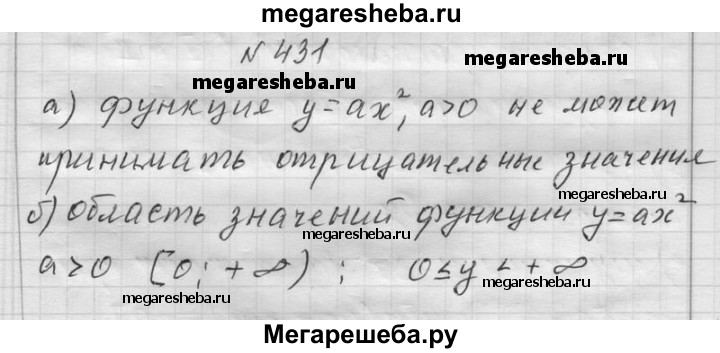 megaresheba.ru
N 431
megaresheba.ru
megaresheba.ru
а) функция y=ax², a>0 не может
принимать отрицательные значения
megaresheba.ru
б) область значений функции y=ax²
megaresheba.ru
a>0 [0; +∞) ; 0≤y<+∞
megaresheba.ru
megaresheba.ru
Мегарешеба.ру